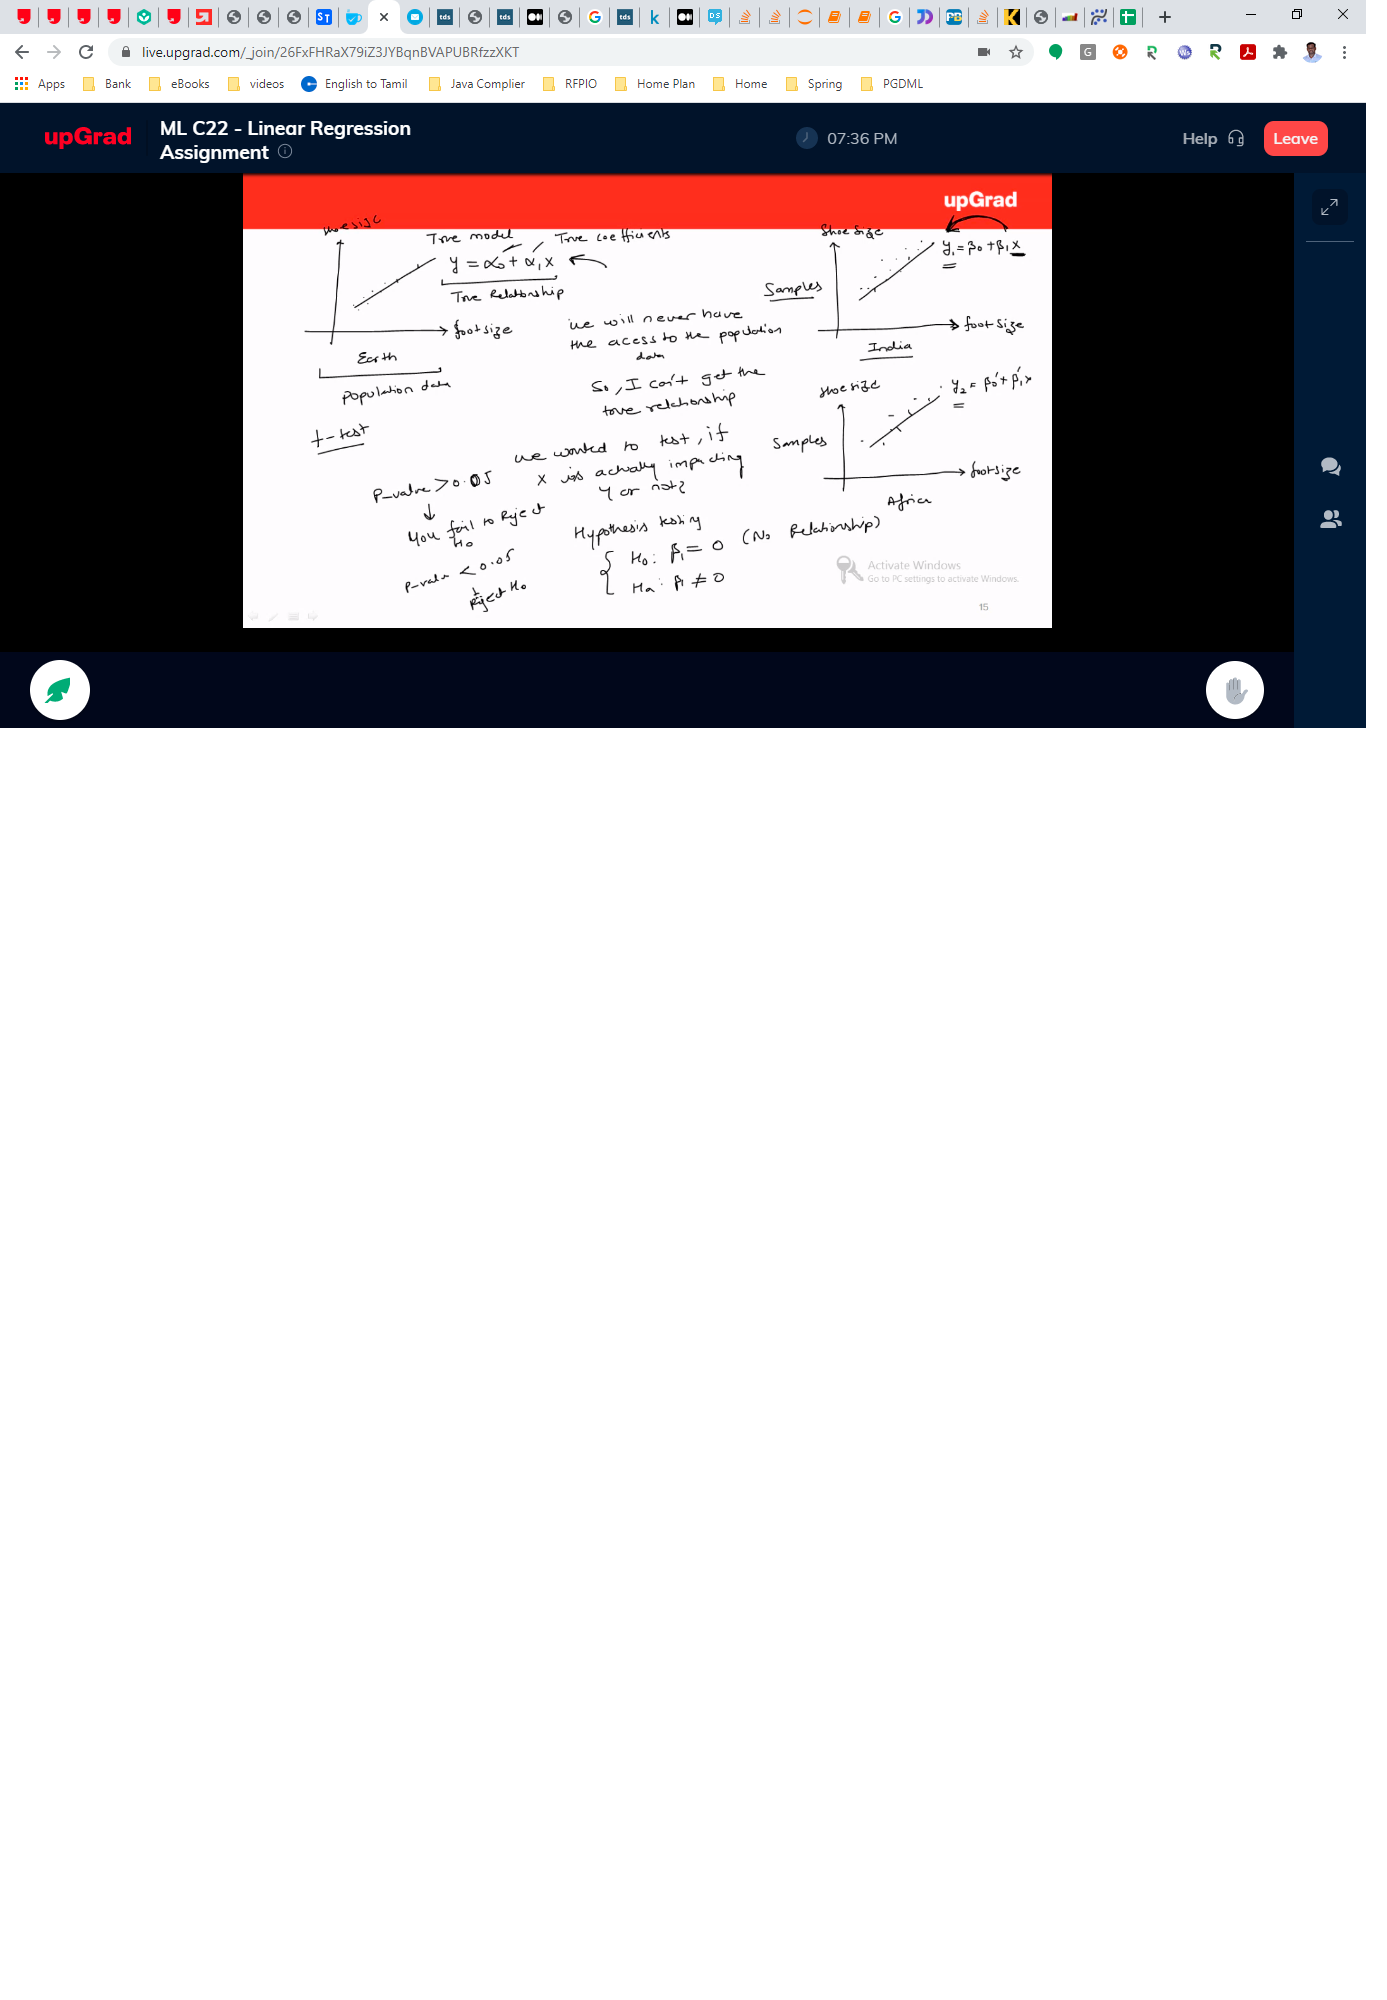 live.upgrad.com/_join/26FxFHRaX79iZ3JYBqnBVAPUBRfzzXKT
Apps Bank eBooks videos English to Tamil Java Complier RFPIO Home Plan Home Spring PGDML
upGrad
ML C22 - Linear Regression
Assignment
07:36 PM
Help
Leave
upGrad
shoe size
True model True coefficients
y = α₀ + α₁x
True Relationship
footsize
Earth
population data
we will never have
the acess to the population
data
So, I can't get the
true relationship
Shoe size
y₁ = β₀ + β₁x
Samples
foot size
India
shoe size
y₂ = β₀' + β₁'x
Samples
footsize
Africa
t-test
we wanted to test, if
x is actually impacting
y or not?
P-value > 0.05
↓
you fail to Reject
H₀
P-value < 0.05
↓
Reject H₀
Hypothesis testing
H₀: β₁ = 0 (No Relationship)
Hₐ: β₁ ≠ 0
Activate Windows
Go to PC settings to activate Windows.
15